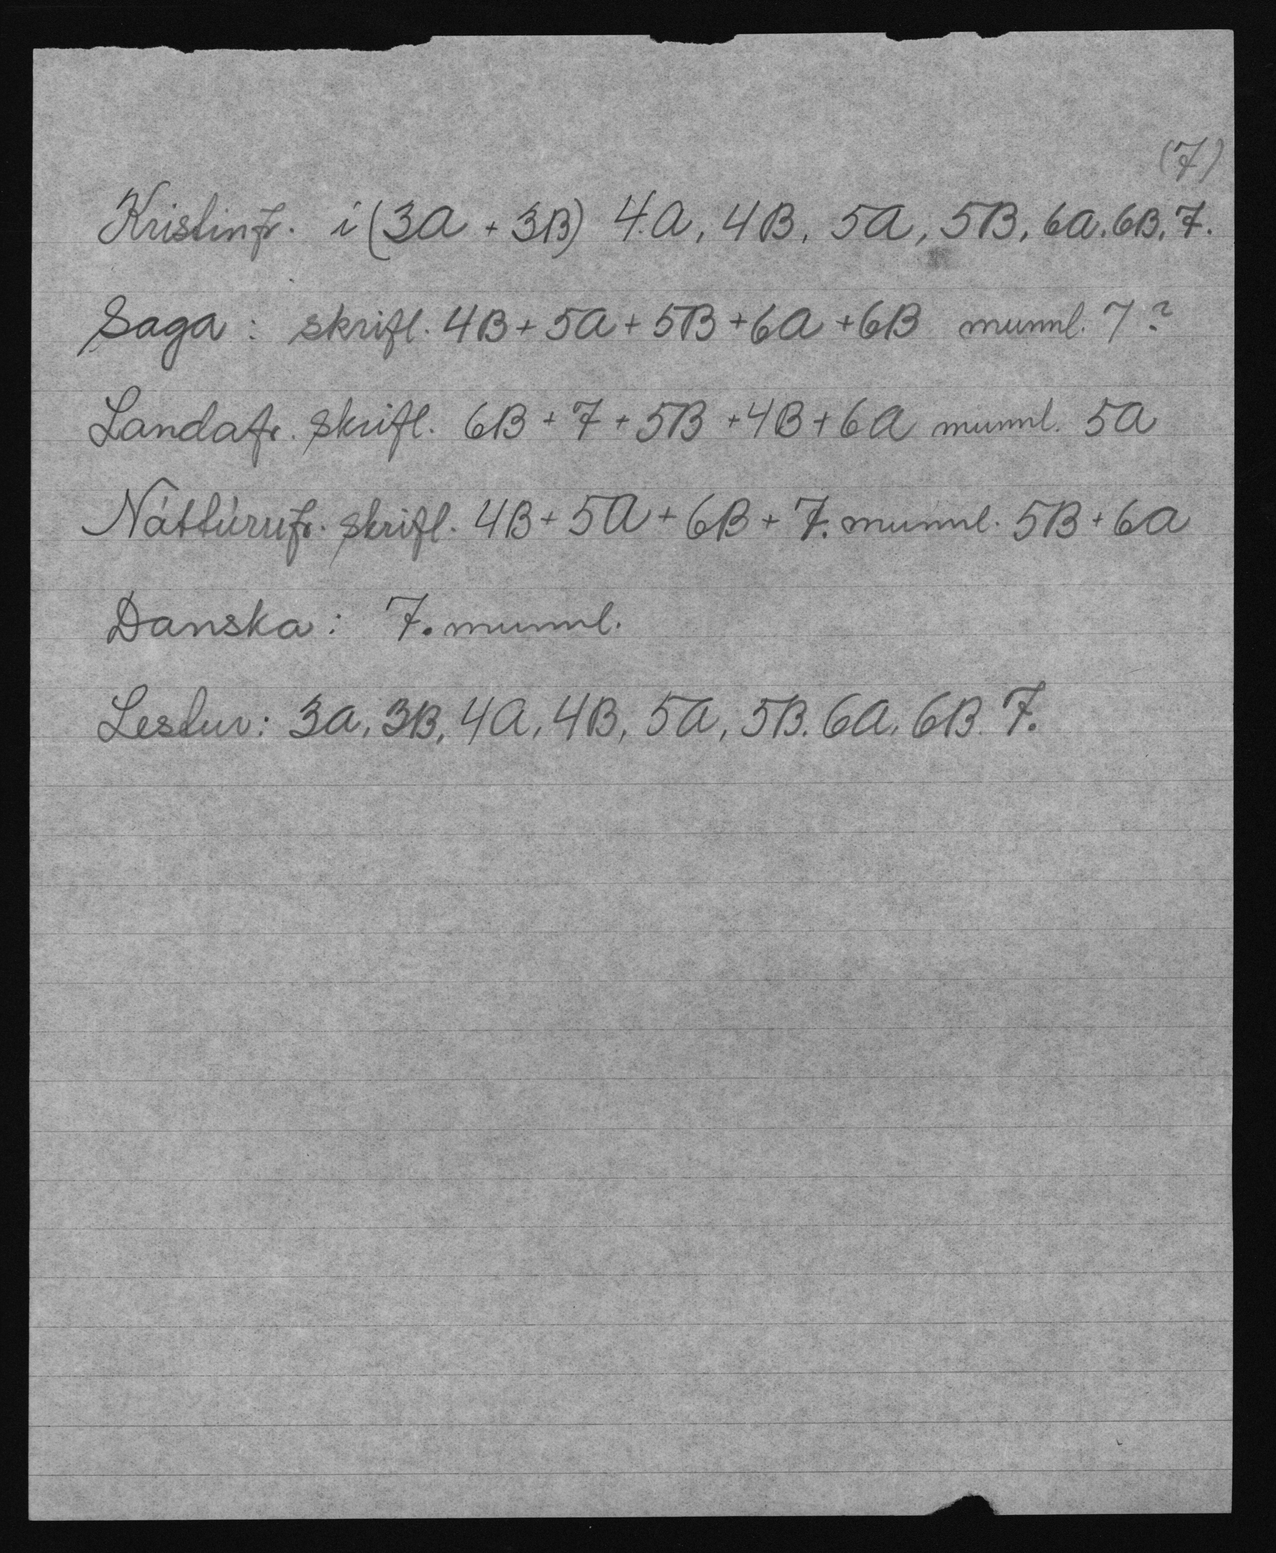 (7)
Kristinfr. í (3a + 3B) 4.a, 4B, 5a, 5B, 6a. 6B, 7.
Saga : skrifl. 4B + 5a + 5B + 6a + 6B munnl. 7 ?
Landafr. skrifl. 6B + 7 + 5B + 4B + 6a munnl. 5a
Náttúrufr. skrifl. 4B + 5a + 6B + 7. munnl. 5B + 6a
Danska : 7. munnl.
Lestur: 3a, 3B, 4a, 4B, 5a, 5B. 6a, 6B. 7.